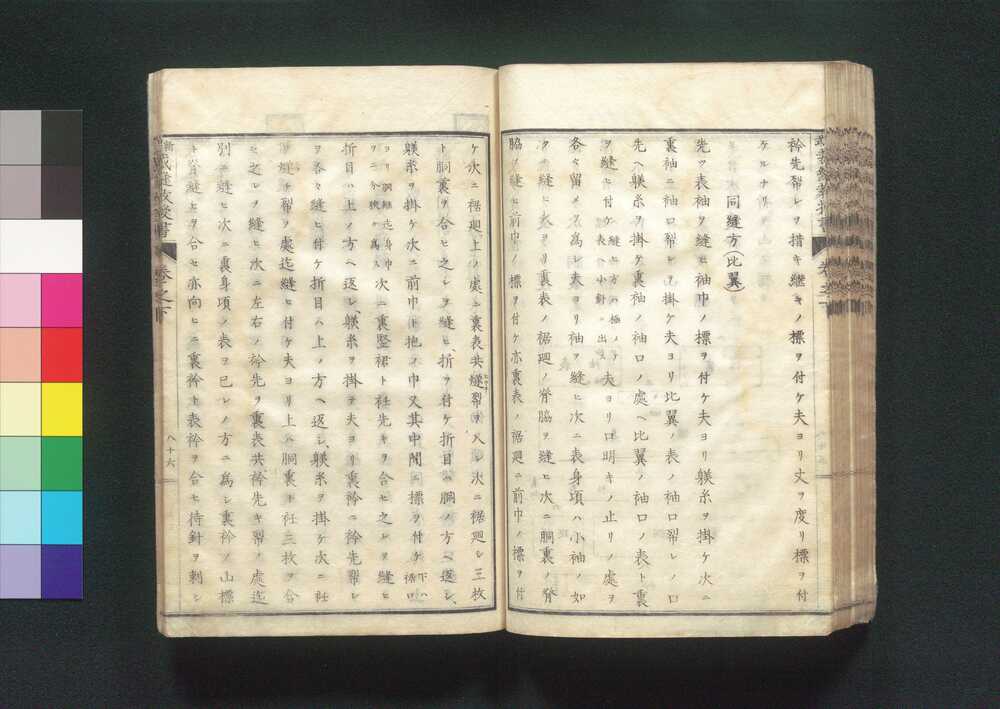 衿先裂レヲ措キ継キノ標ヲ付ケ夫ヨリ丈ヲ度リ標ヲ付
ケルナリ
同縫方(比翼)
先ツ表袖ヲ縫ヒ袖巾ノ標ヲ付ケ夫ヨリ躾糸ヲ掛ケ次ニ
裏袖ニ袖口裂レヲ掛ケ夫ヨリ比翼ノ表ノ袖口裂レノ口
先ヘ躾糸ヲ掛ケ裏袖ノ袖口ノ處ヘ比翼ノ袖口ノ表ト裏
ヲ縫ヒ付ケ 夫ヨリ口明キノ止リノ處ヲ
各々留メヲ為シ夫ヨリ袖ヲ縫ヒ次ニ表身頃ハ小袖ノ如
ク脊縫ヒ夫ヨリ裏表ノ裾廻ノ脊脇ヲ縫ヒ次ニ胴裏ノ脊
脇ヲ縫ヒ前巾ノ標ヲ付ケ亦裏表ノ裾廻ニ前巾ノ標ヲ付
ケ次ニ裾廻シ上ノ處ニ裏表共縫裂ヲ入レ次ニ裾廻シ三枚
ト胴裏ヲ合ヒ之レヲ縫ヒ、折ヲ付ケ折目ハ胴ノ方ヘ返シ、
躾糸ヲ掛ケ次ニ前巾ト抱ノ巾又其中間ニ標ヲ付ケ
次ニ裏竪裙ト衽先キヲ合ヒ之レヲ縫ヒ
折目ハ上ノ方ヘ返シ、躾糸ヲ掛ヲ夫ヨリ裏衿ニ衿先裂レ
ヲ各々縫ヒ付ケ折目ハ上ノ方ヘ返シ、躾糸ヲ掛ケ次ニ衽
裂ヲ處迄縫ヒ付ケ夫ヨリ上ハ胴裏ト衽三枚ヲ合
セ之レヲ縫ヒ次ニ左右ノ衿先ヲ裏表共衿先キ裂ノ處迄
別ニ縫ヒ次ニ裏身頃ノ表ヲ己レノ方ニ為シ裏衿ノ山標
ト脊縫ヒヲ合セ亦向ヒニ裏衿ト表衿ヲ合ヒ待針ヲ刺シ
裁縫教授書 卷之下
八十六